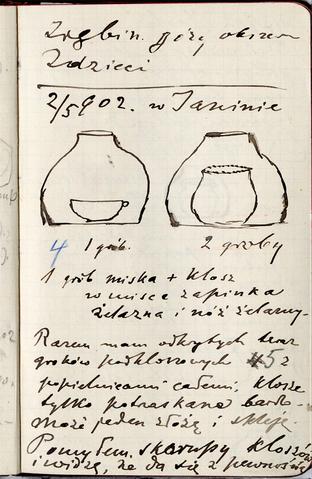 2 dzieci
2/5 902. w Janinie
4 1 grób. 2 groby
1 grób miska + klosz
w misce zapinka
żelazna i nóż żelazny.
Razem mam odkrytych teraz
grobów podkloszowych 45 z
popielnicami całemi, klosze
tylko potrzaskane bardzo
może jeden złożę i skleję.
Pomyłem skorupy kloszów
i widzę, że da się z pewnością